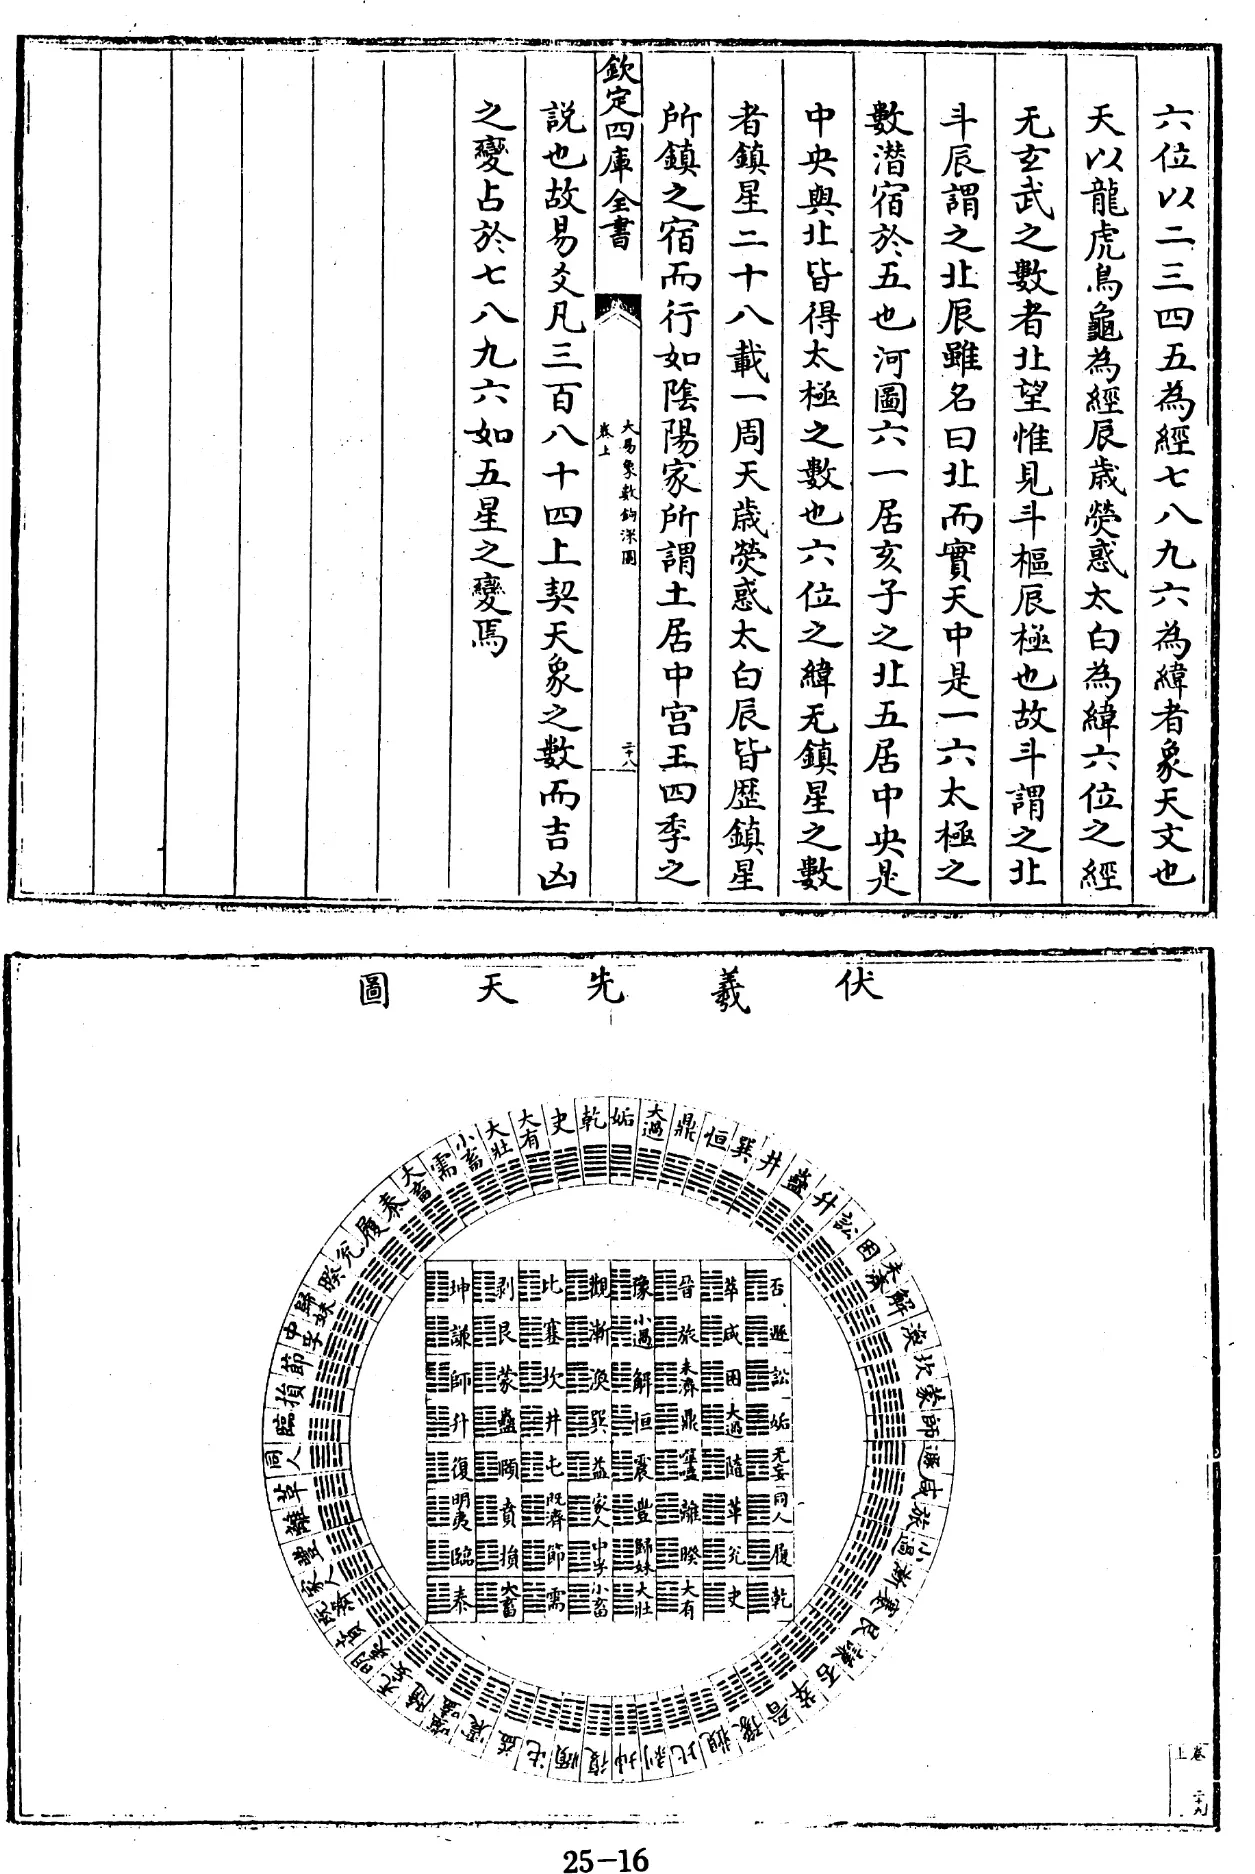 六位以二三四五為經七八九六為緯者象天文也
天以龍虎鳥龜為經辰歲熒惑太白為緯六位之經
无玄武之數者北望惟見斗樞辰極也故斗謂之北
斗辰謂之北辰雖名曰北而實天中是一六太極之
數潛宿於五也河圖六一居亥子之北五居中央是
中央與北皆得太極之數也六位之緯无鎮星之數
者鎮星二十八載一周天歲熒惑太白辰皆歷鎮星
所鎮之宿而行如陰陽家所謂土居中宫王四季之
欽定四庫全書
大易象數鉤深圖
卷上
二十八
說也故易爻凡三百八十四上契天象之數而吉凶
之變占於七八九六如五星之變焉
伏羲先天圖
姤 大過 鼎 恒 巽 井 蠱 升 訟 困 未濟 解 渙 坎 蒙 師 遯 咸 旅 小過 漸 蹇 艮 謙 否 萃 晉 豫 觀 比 剥 坤 復 頤 屯 益 震 噬嗑 隨 无妄 明夷 賁 既濟 家人 豐 離 革 同人 臨 損 節 中孚 歸妹 睽 兌 履 泰 大畜 需 小畜 大壯 大有 夬 乾
否 萃 晉 豫 觀 比 剥 坤
遯 咸 旅 小過 漸 蹇 艮 謙
訟 困 未濟 解 渙 坎 蒙 師
姤 大過 鼎 恒 巽 井 蠱 升
无妄 隨 噬嗑 震 益 屯 頤 復
同人 革 離 豐 家人 既濟 賁 明夷
履 兌 睽 歸妹 中孚 節 損 臨
乾 夬 大有 大壯 小畜 需 大畜 泰
卷上
二十九
25-16